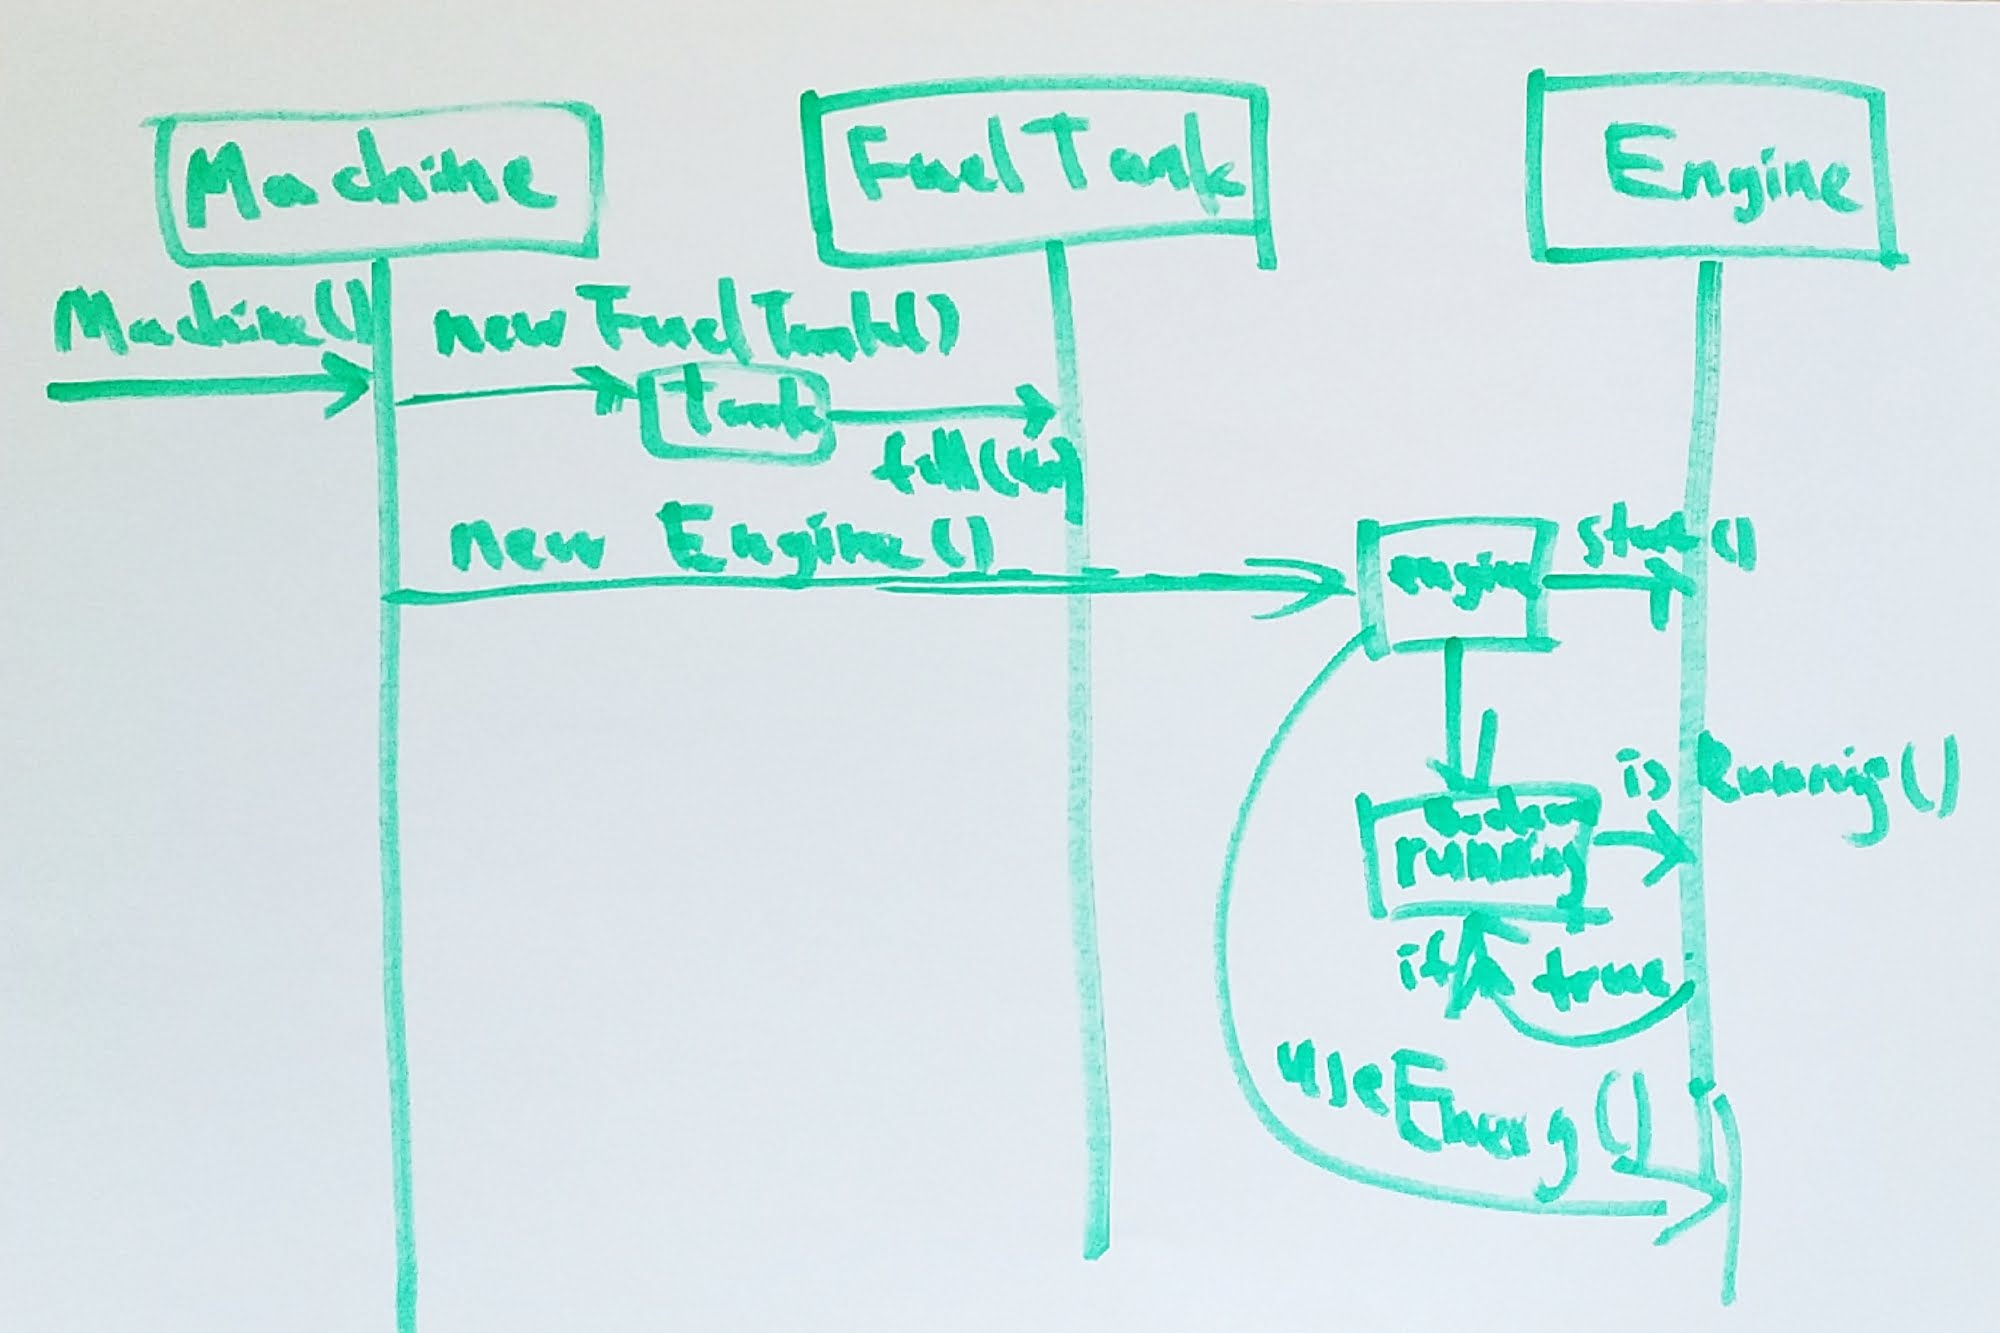 Machine
FuelTank
Engine
Machine()
new FuelTank()
Tank
fill(
new Engine()
engine
start()
isRunnig()
running
if true
useEnerg()